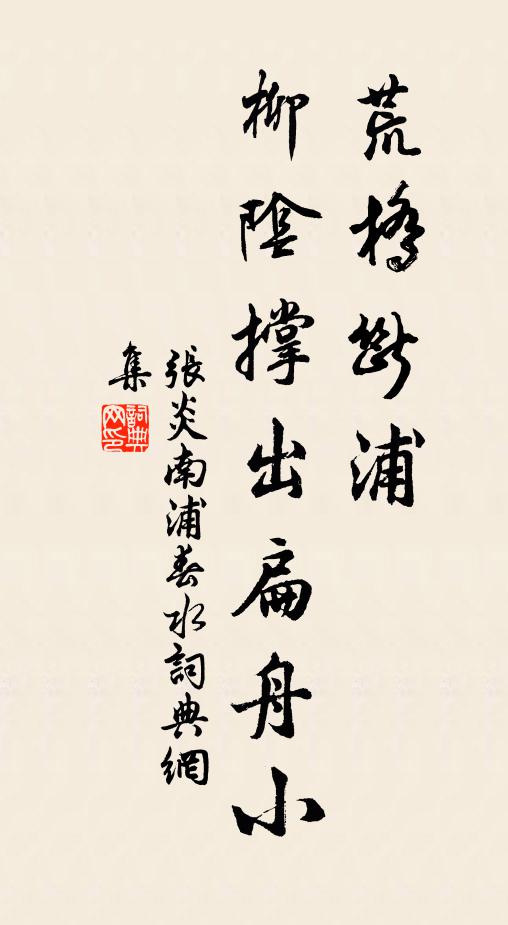 荒橋斷浦
柳陰撐出扁舟小
張炎南浦春水詞典網
集
詞典網印